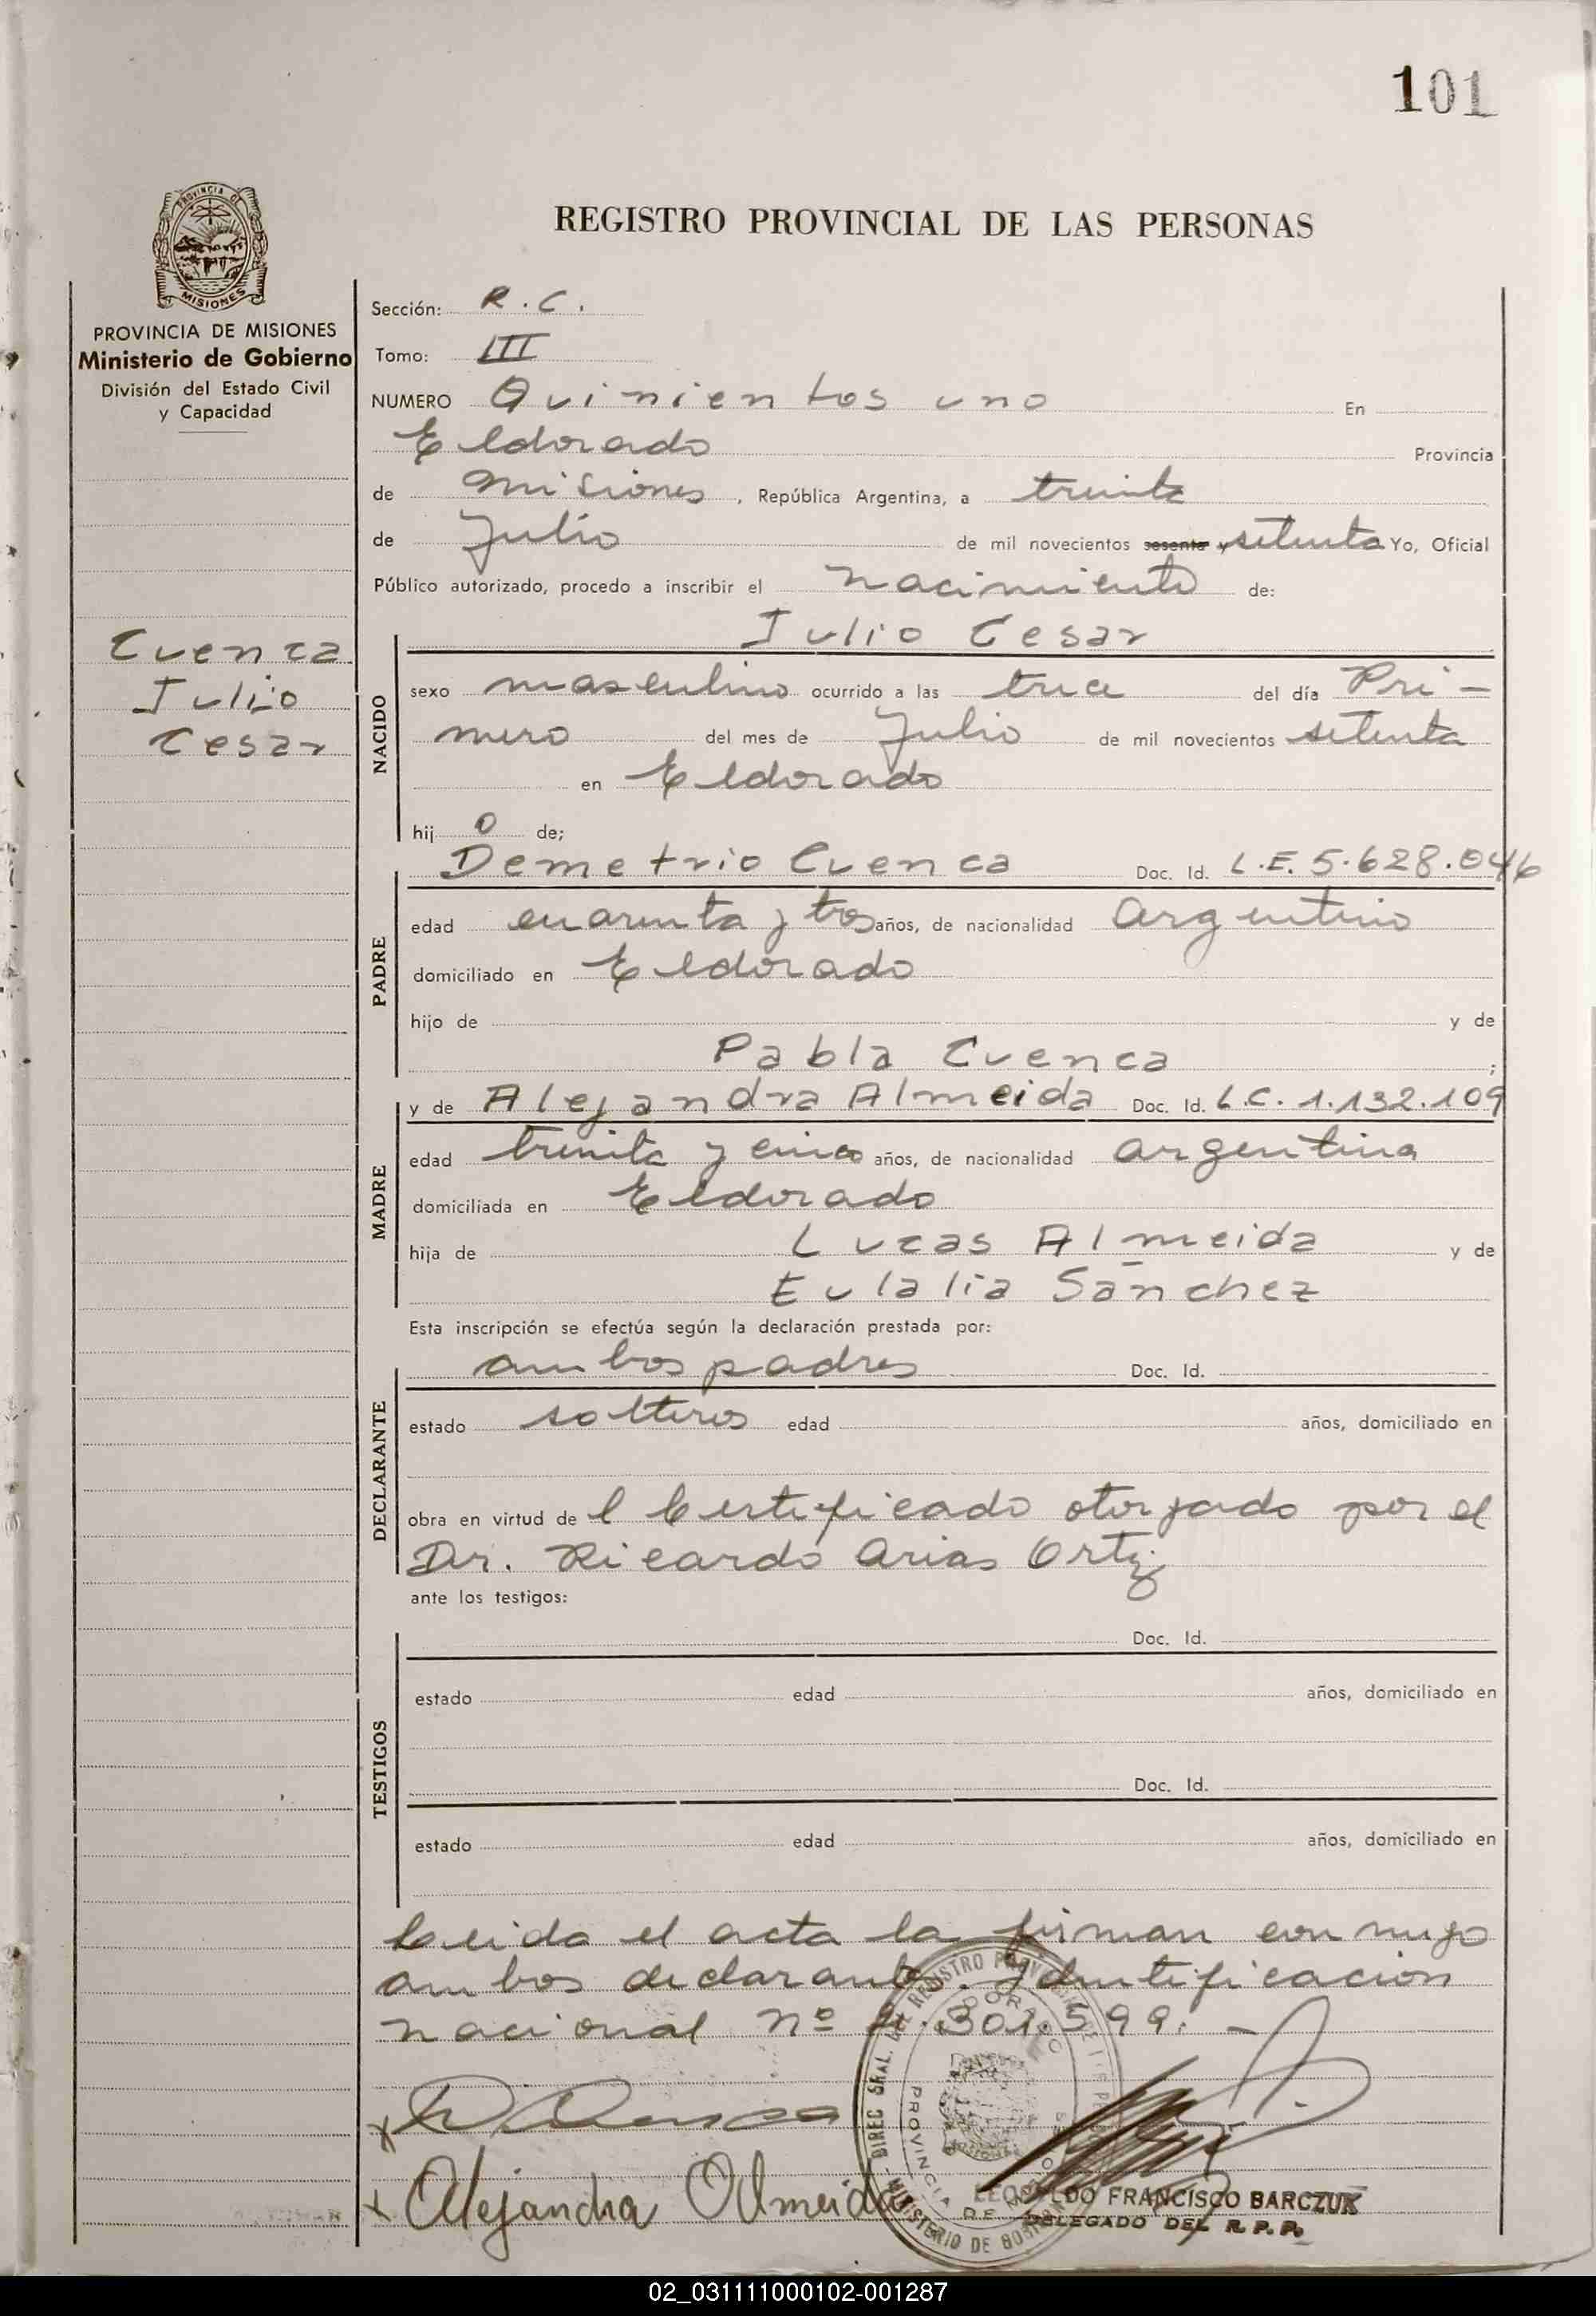 101
REGISTRO PROVINCIAL DE LAS PERSONAS
PROVINCIA DE
MISIONES
PROVINCIA DE MISIONES
Ministerio de Gobierno
División del Estado Civil
y Capacidad
Cuenca
Julio
Cesar
Sección: R.C.
Tomo: III
NUMERO Quinientos uno En
Eldorado Provincia
de Misiones, República Argentina, a treinta
de Julio de mil novecientos sesenta y setenta Yo, Oficial
Público autorizado, procedo a inscribir el nacimiento de:
Julio Cesar
NACIDO
sexo masculino ocurrido a las trece del día Pri-
mero del mes de Julio de mil novecientos setenta
en Eldorado
hij o de;
Demetrio Cuenca Doc. Id. L.E. 5.628.046
PADRE
edad cuarenta y tres años, de nacionalidad Argentino
domiciliado en Eldorado
hijo de y de
Pabla Cuenca ;
y de Alejandra Almeida Doc. Id. L.C. 1.132.109
MADRE
edad treinta y cinco años, de nacionalidad argentina
domiciliada en Eldorado
hija de Lucas Almeida y de
Eulalia Sánchez
Esta inscripción se efectúa según la declaración prestada por:
ambos padres Doc. Id.
DECLARANTE
estado solteros edad años, domiciliado en
obra en virtud de l Certificado otorgado por el
Dr. Ricardo Arias Ortiz
ante los testigos:
Doc. Id.
TESTIGOS
estado edad años, domiciliado en
Doc. Id.
estado edad años, domiciliado en
Leida el acta la firman conmigo
ambos declarantes. Identificación
nacional nº 301.599. -
Alejandra Almeida
LEOPOLDO FRANCISCO BARCZUK
DELEGADO DEL R.P.P.
02_031111000102-001287